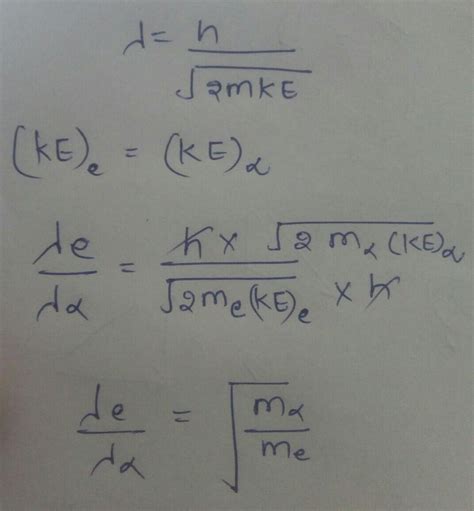 λ = h / √2mKE
(KE)e = (KE)α
λe / λα = h × √2 mα (KE)α / √2me(KE)e × h
λe / λα = √mα / me